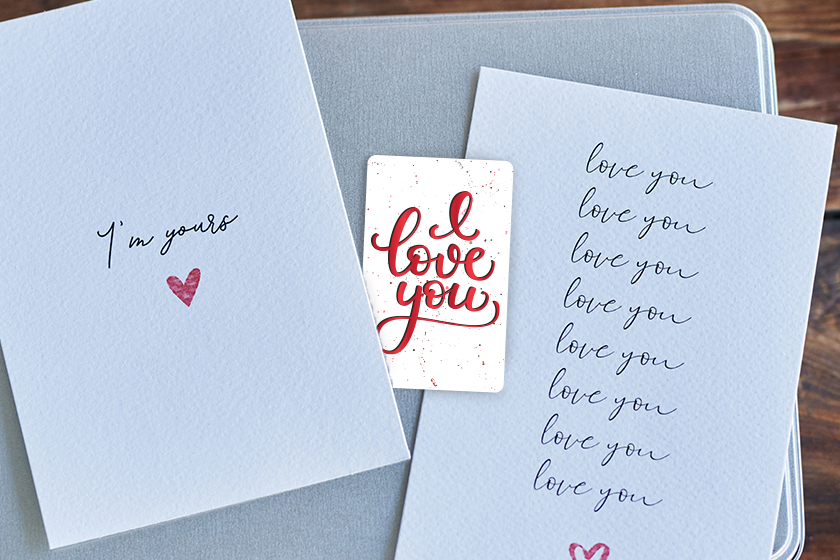 I'm yours
I
love
you
love you
love you
love you
love you
love you
love you
love you
love you